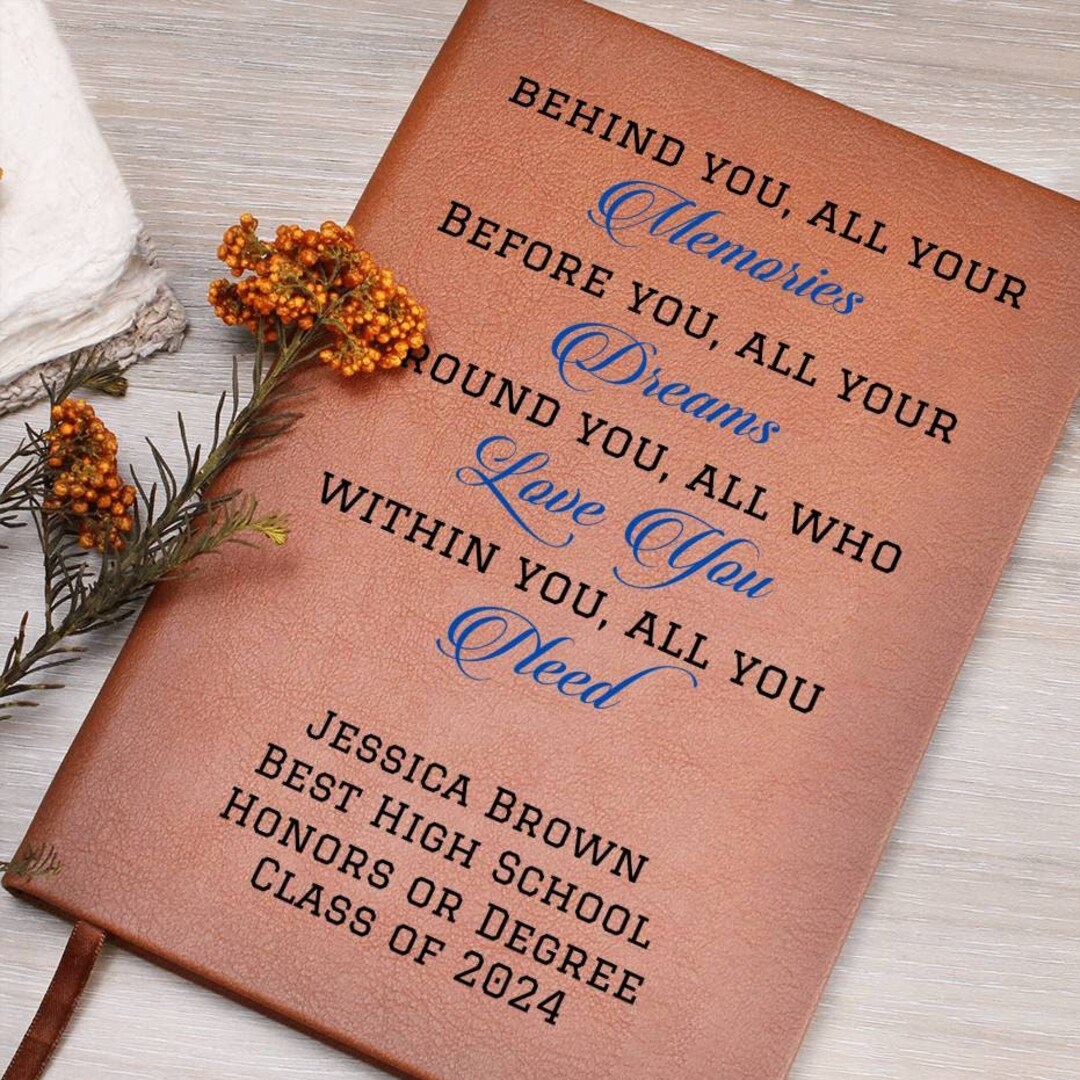 BEHIND YOU, ALL YOUR
Memories
BEFORE YOU, ALL YOUR
Dreams
ROUND YOU, ALL WHO
Love You
WITHIN YOU, ALL YOU
Need
JESSICA BROWN
BEST HIGH SCHOOL
HONORS OR DEGREE
CLASS OF 2024